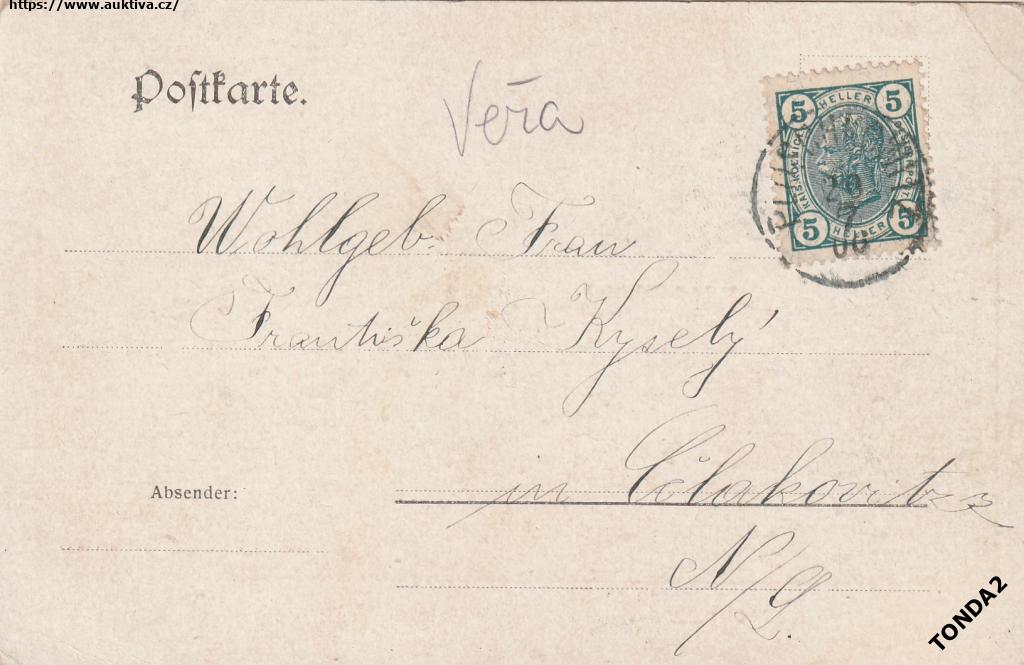 https://www.auktiva.cz/
Postkarte.
Věra
5 HELLER 5
5 HELLER 5
Wohlgeb. Frau
Františka Kyselý
Absender:
in Čelakovitz
N/L.
TONDA2